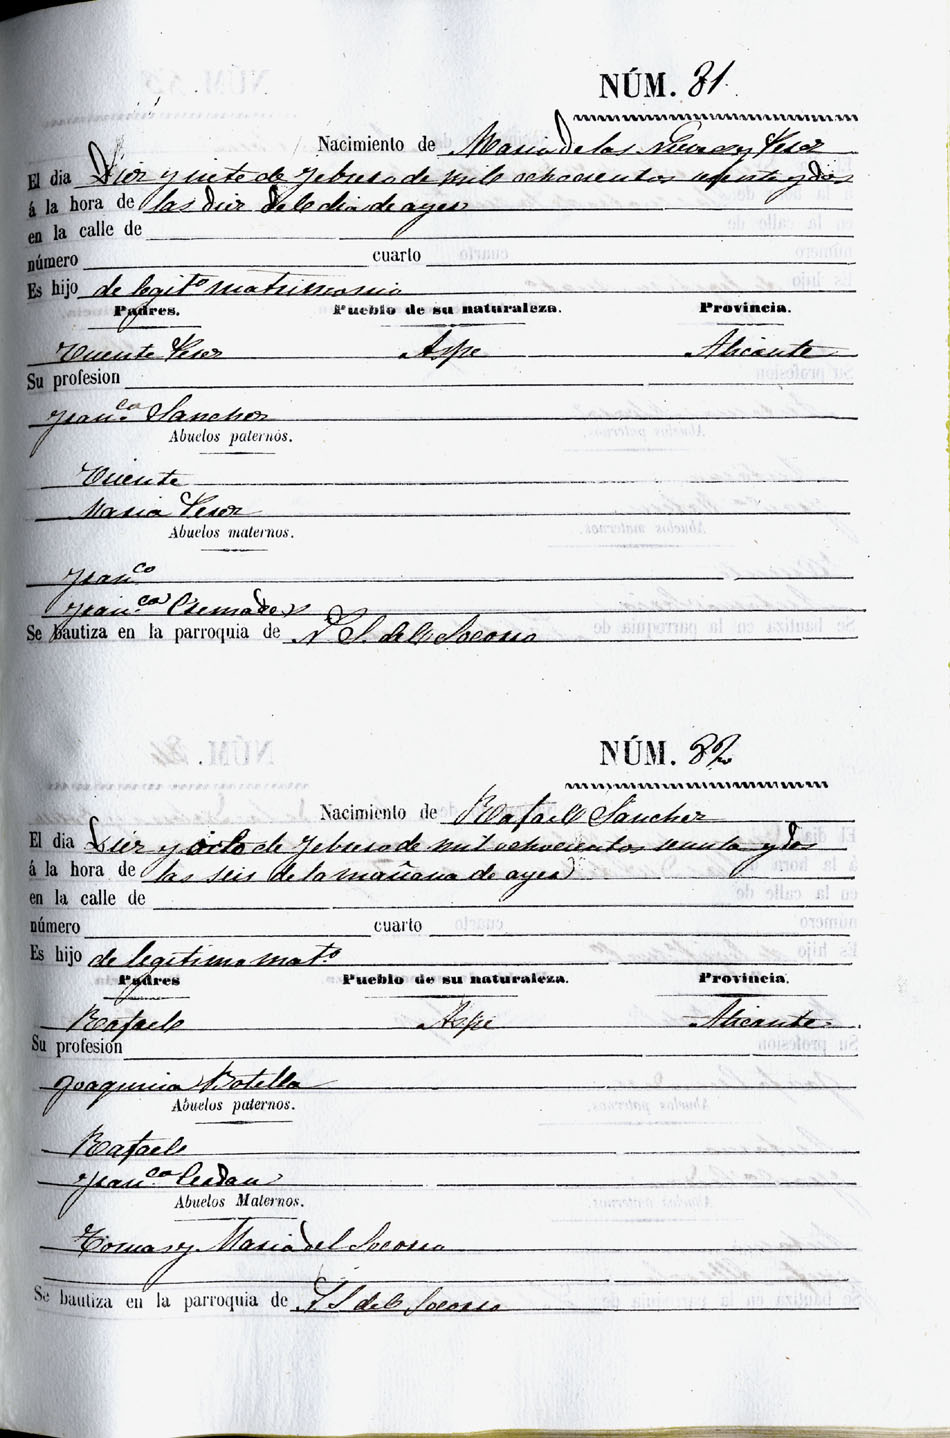 NÚM. 31
Nacimiento de Maria de las Nieves Perez
El dia Diez y siete de Febrero de mil ochocientos sesenta y dos
á la hora de las diez del dia de ayer
en la calle de
número cuarto
Es hijo de legitº matrimonio
Padres. Pueblo de su naturaleza. Provincia.
Vicente Perez Aspe Alicante
Su profesion
Franca Sanchez
Abuelos paternos.
Vicente
Maria Perez
Abuelos maternos.
Franco
Franca Cremades
Se bautiza en la parroquia de N S. del Socorro
NÚM. 32
Nacimiento de Rafael Sanchez
El dia Diez y ocho de Febrero de mil ochocientos sesenta y dos
á la hora de las seis de la mañana de ayer
en la calle de
número cuarto
Es hijo de legitimo matº
Padres Pueblo de su naturaleza. Provincia.
Rafael Aspe Alicante
Su profesion
Joaquina Botella
Abuelos paternos.
Rafael
Franca Cerdan
Abuelos Maternos.
Tomas y Maria del Socorro
Se bautiza en la parroquia de N S del Socorro